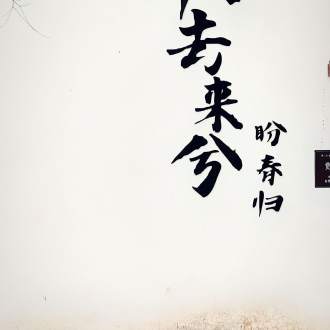 去来兮
盼春归